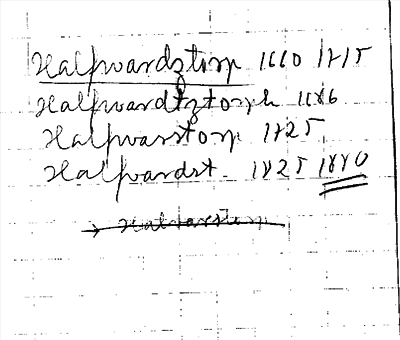 Halfwardztorp 1660 1715
Halfwardtztorph 1686
Halfvarstorp 1725
Halfvardst. 1825 1880
→